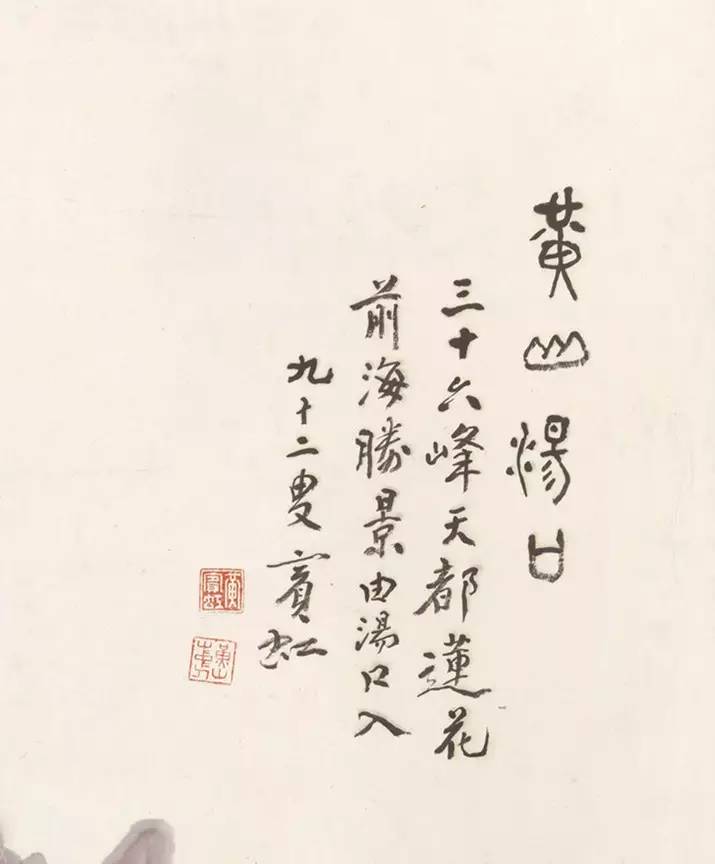 黄山湯口
三十六峰天都蓮花
前海勝景由湯口入
九十二叟賓虹
黄賓虹
黄山山中人